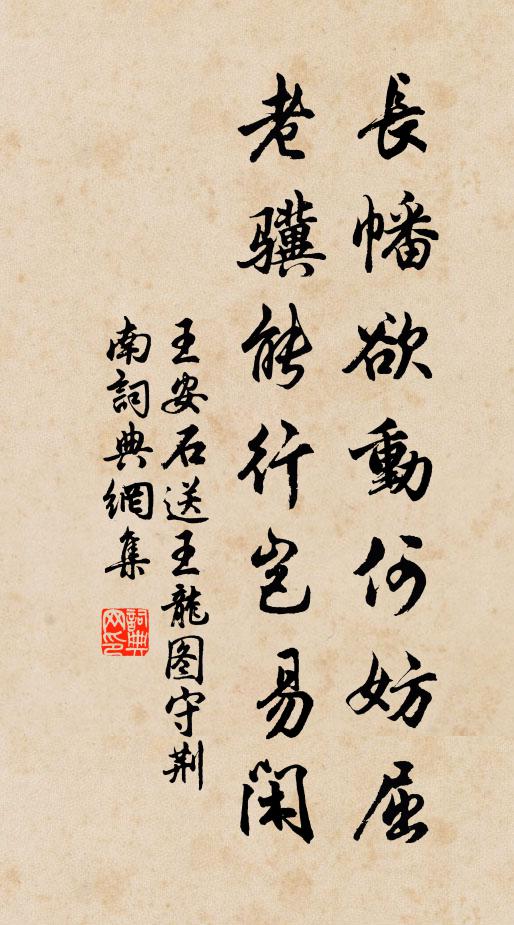 長幡欲動何妨屈
老驥能行岂易閑
王安石送王龍图守荆
南詞典網集
詞典
网印